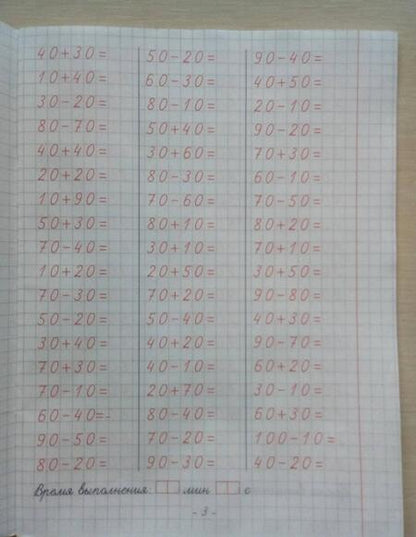 40+30= 50-20= 90-40=
10+40= 60-30= 40+50=
30-20= 80-10= 20-10=
80-70= 50+40= 90-20=
40+40= 30+60= 70+30=
20+20= 80-30= 60-10=
10+90= 70-60= 70-50=
50+30= 80+10= 80+20=
70-40= 30+10= 70+10=
10+20= 20+50= 30+50=
70-30= 70+20= 90-80=
50-20= 50-40= 40+30=
30+40= 40+20= 90-70=
70+30= 40-10= 60+20=
70-10= 20+70= 30-10=
60-40=- 80-40= 60+30=
90-50= 70-20= 100-10=
80-20= 90-30= 40-20=
Время выполнения: мин с
- 3 -